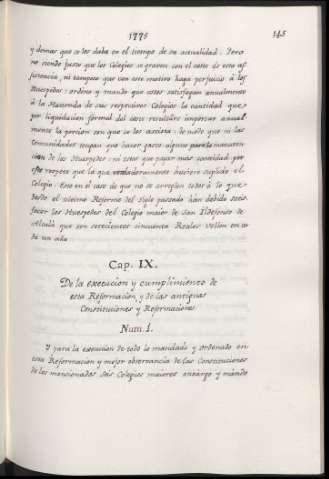 1775
145
y demas que se les daba en el tiempo de su actualidad. Pero
no siendo justo que los Colegios se graven con el coste de esta as-
sistencia, ni tampoco que con este motivo haga perjuicio à los
Huespedes: ordeno y mando que estos satisfagan anualmente
à la Hacienda de sus respectivos Colegios la cantidad que
por liquidacion formal del coste resultare importar anual
mente la porcion con que se les assista: de modo que ni las
Comunidades tengan que hacer gasto alguno para la manuten
cion de los Huespedes; ni estos que pagar mas cantidad por
este respeto que la que verdaderamente huviere suplido el
Colegio. Esto en el caso de que no se arreglen todos à lo que
desde el ultimo Reforme del Siglo pasado han debido satis
facer los Huespedes del Colegio maior de San Ildefonso de
Alcalà que son setecientos cinquenta Reales Vellon en ca
da un año
Cap. IX.
De la execucion y cumplimiento de
esta Reformacion, y de las antiguas
Constituciones y Reformaciones
Num 1.
Y para la execucion de todo lo mandado y ordenado en
esta Reformacion y mejor observancia de las Constituciones
de los mencionados Seis Colegios maiores encargo y mando